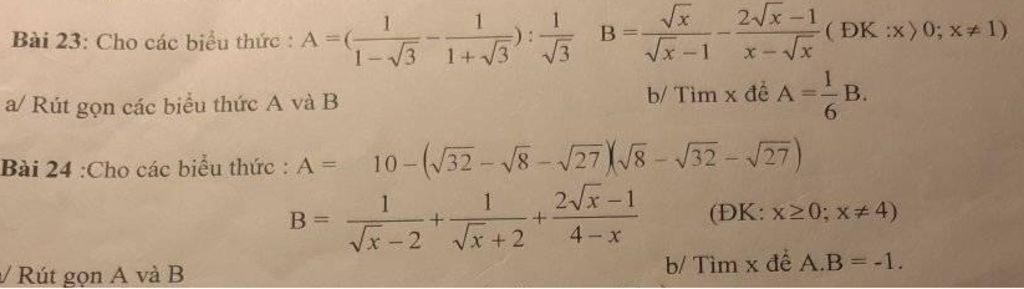 Bài 23: Cho các biểu thức : A =(\frac{1}{1-\sqrt{3}} - \frac{1}{1+\sqrt{3}}) : \frac{1}{\sqrt{3}} B = \frac{\sqrt{x}}{\sqrt{x}-1} - \frac{2\sqrt{x}-1}{x-\sqrt{x}} ( ĐK :x⟩0; x≠1)
a/ Rút gọn các biểu thức A và B b/ Tìm x để A = \frac{1}{6} B.
Bài 24 :Cho các biểu thức : A = 10-(\sqrt{32}-\sqrt{8}-\sqrt{27})(\sqrt{8}-\sqrt{32}-\sqrt{27})
B = \frac{1}{\sqrt{x}-2} + \frac{1}{\sqrt{x}+2} + \frac{2\sqrt{x}-1}{4-x} (ĐK: x≥0; x≠4)
/ Rút gọn A và B b/ Tìm x để A.B = -1.